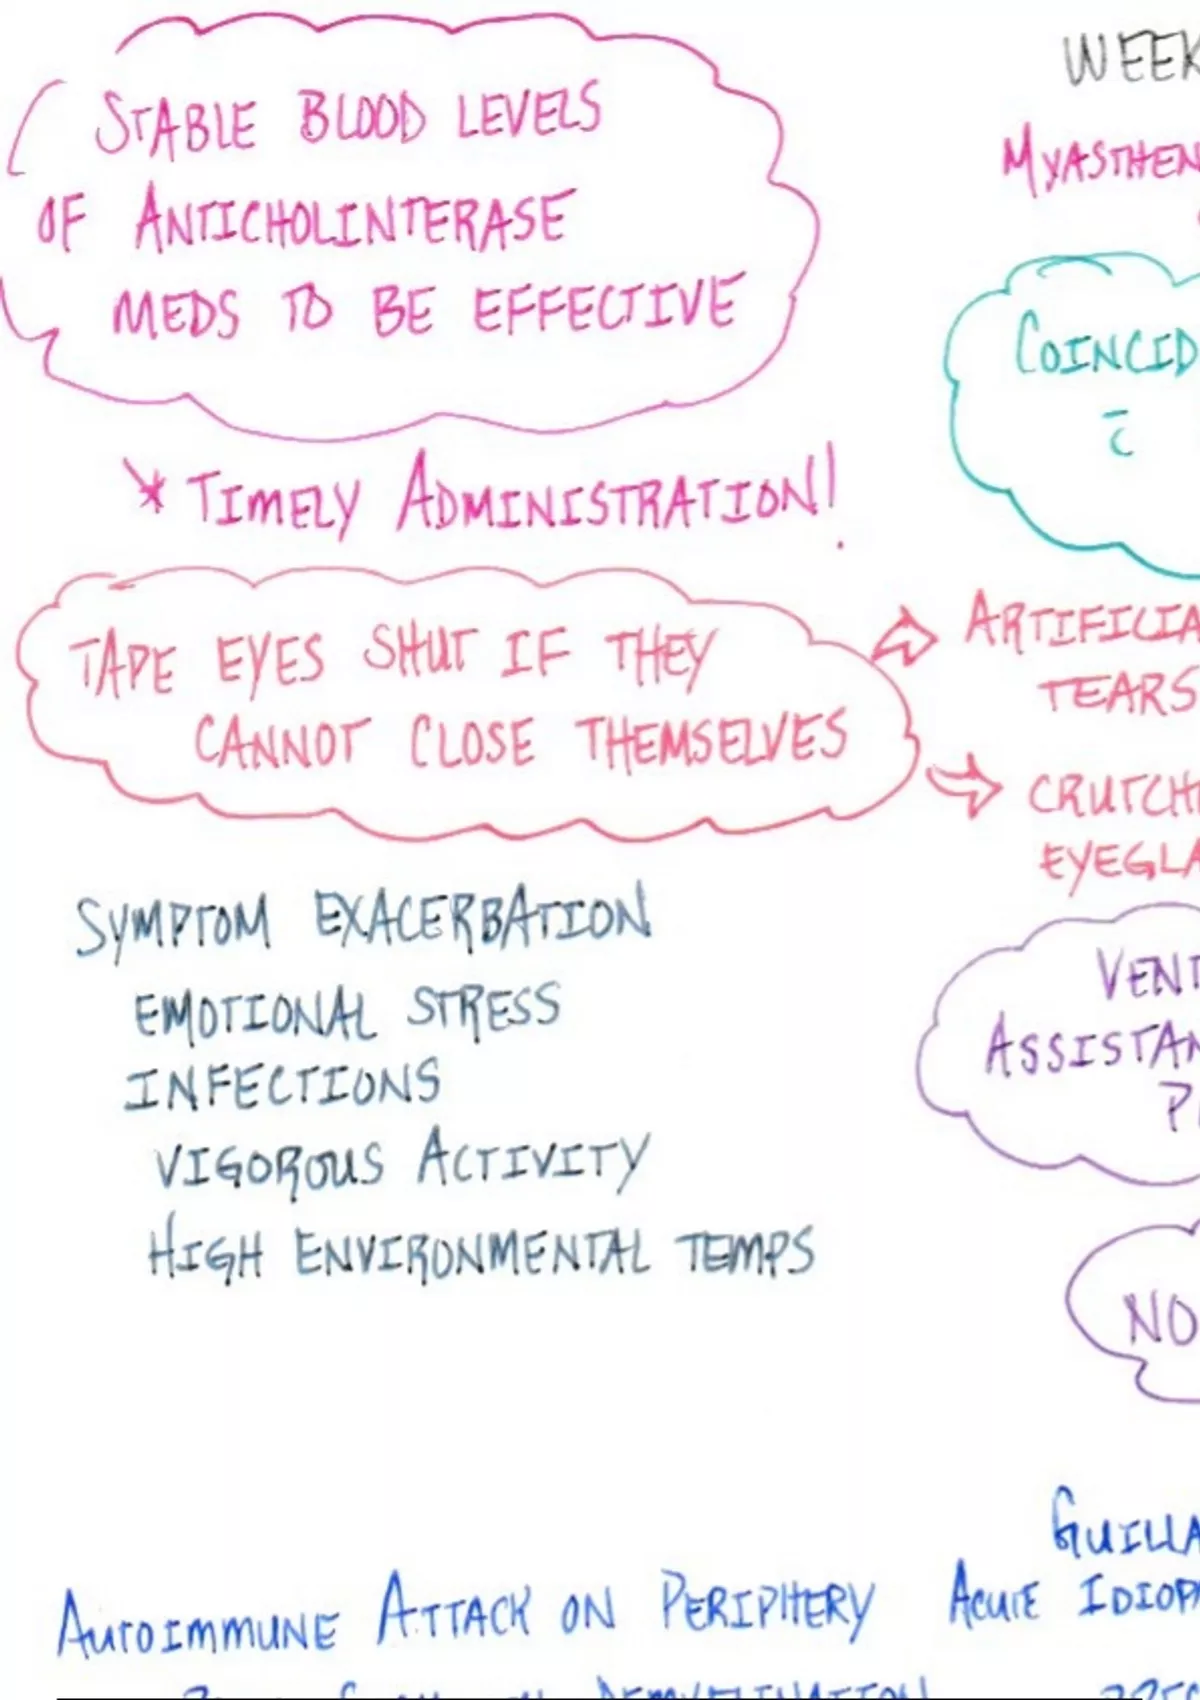 STABLE BLOOD LEVELS
OF ANTICHOLINTERASE
MEDS TO BE EFFECTIVE
* TIMELY ADMINISTRATION!
TAPE EYES SHUT IF THEY
CANNOT CLOSE THEMSELVES
SYMPTOM EXACERBATION
EMOTIONAL STRESS
INFECTIONS
VIGOROUS ACTIVITY
HIGH ENVIRONMENTAL TEMPS
AUTOIMMUNE ATTACK ON PERIPHERY
WEEK
MYASTHEN
COINCID
c̄
ARTIFICIA
TEARS
CRUTCH
EYEGLA
VENT
ASSISTAN
P
NO
GUILLA
ACUTE IDIOP